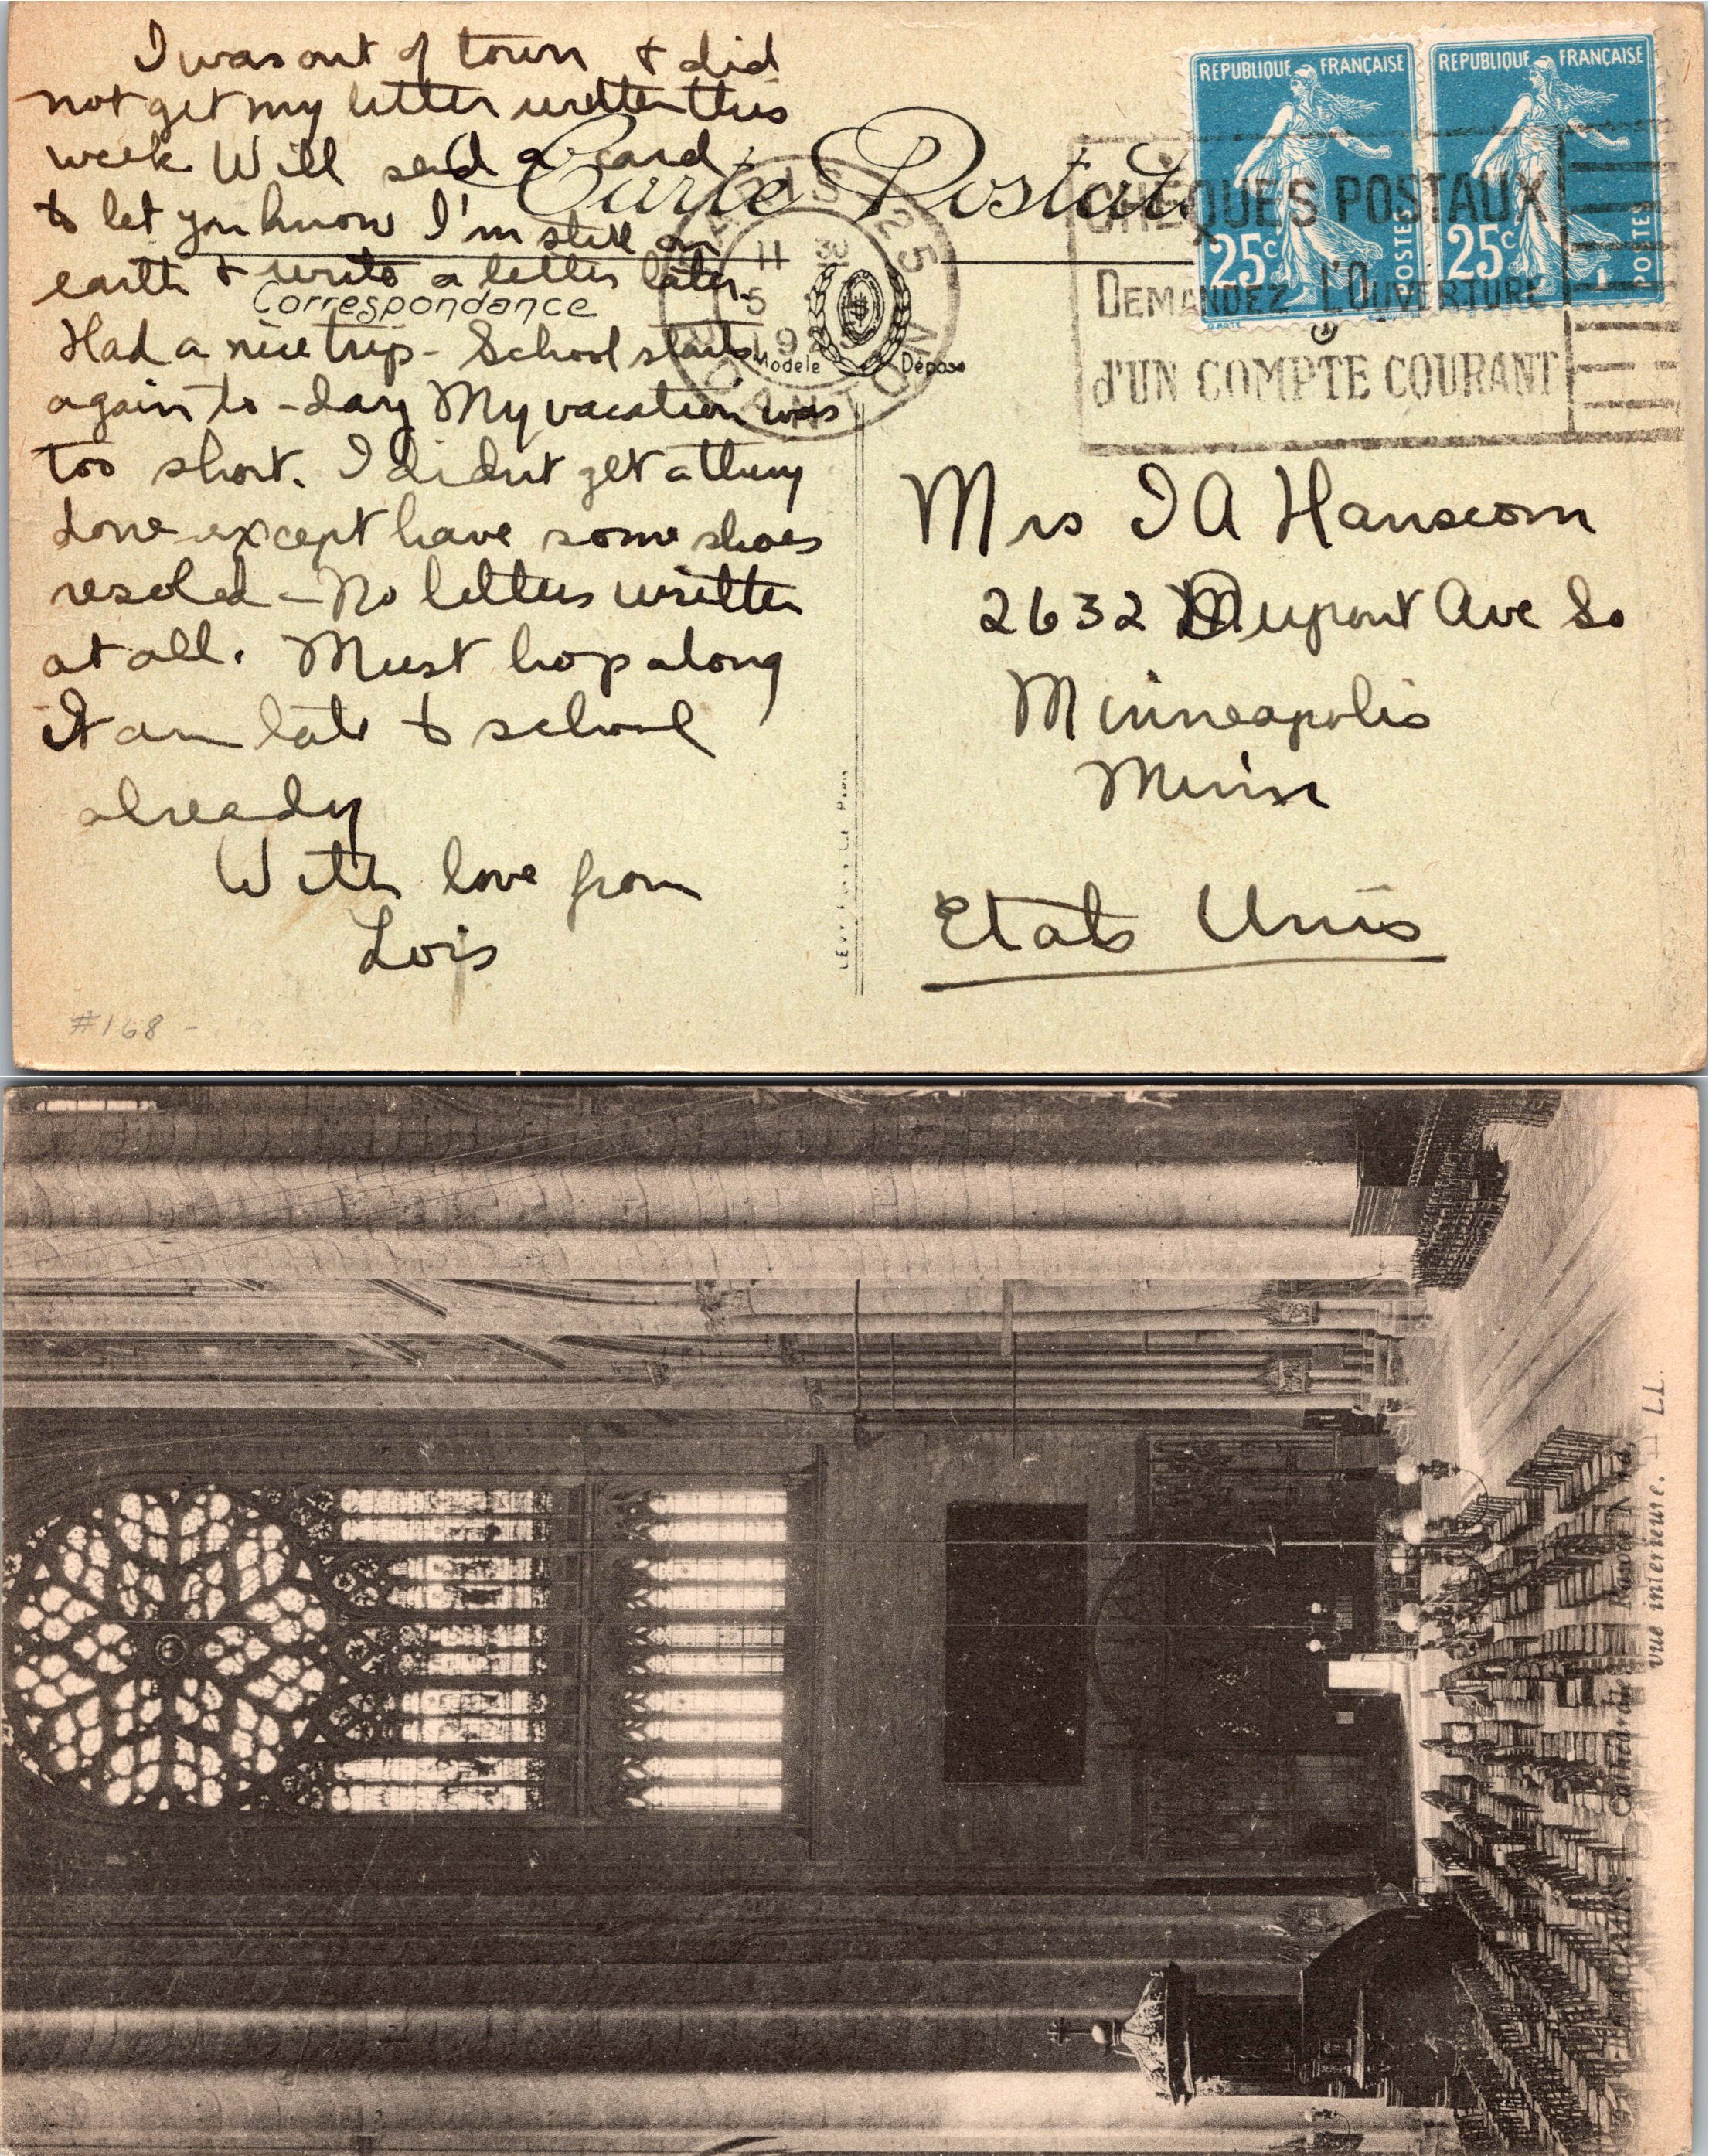 I was out of town & did
not get my letter written this
week. Will send a card
to let you know I'm still on
earth & write a letter later.
Had a nice trip - School starts
again to-day My vacation was
too short. I didn't get a thing
done except have some shoes
resoled - No letters written
at all. Must hop along
I am late to school
already
With love from
Lois
#168 -
Carte Postale
Correspondance
Modèle Déposé
PARIS 25
11 30
5
REPUBLIQUE FRANÇAISE
25c POSTES
REPUBLIQUE FRANÇAISE
25c POSTES
CHEQUES POSTAUX
DEMANDEZ L'OUVERTURE
d'UN COMPTE COURANT
Mrs I A Hanscom
2632 Dupont Ave So
Minneapolis
Minn
Etats Unis
Cathédrale
vue intérieure. LL.